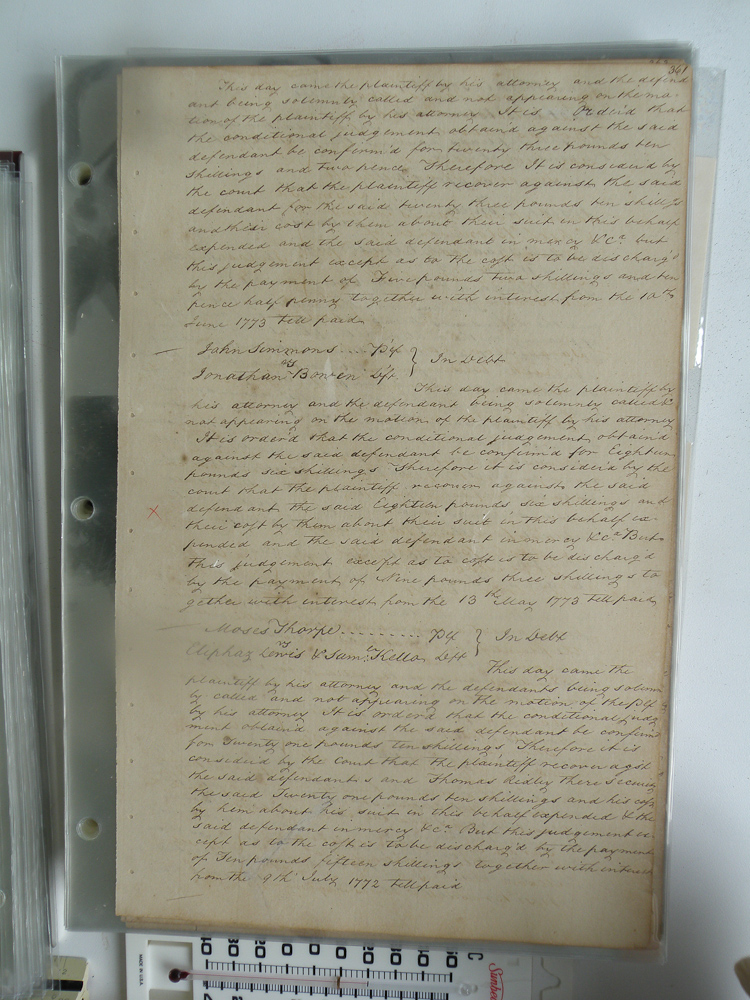 361
This day came the plaintiff by his attorney and the defend
ant being solemnly called and not appearing on the mo-
tion of the plaintiff by his attorney It is Ordeid that
the conditional judgement obtain'd against the said
defendant be confirm'd for twenty three pounds ten
shillings and two pence Therefore It is consider'd by
the court that the plaintiff recover against the said
defendant for the said twenty three pounds ten shill
and their cost by them about their suit in this behalf
expended and the said defendant in mercy &Ca. but
this judgement except as to the cost is to be discharg'd
by the payment of Five pounds two shillings and ten
pence half penny together with interest from the 10th
June 1773 till paid
John Simmons .... Plf } In Debt
vs
Jonathan Bowen Dft
This day came the plaintiff by
his attorney and the defendant being solemnly called &
not appearing on the motion of the plaintiff by his attorney
It is order'd that the conditional judgement obtain'd
against the said defendant be confirm'd for Eighteen
pounds six shillings Therefore it is consider'd by the
court that the plaintiff recover against the said
defendant the said Eighteen pounds six shillings and
their cost by them about their suit in this behalf ex-
pended and the said defendant in mercy &Ca But
this judgement except as to cost is to be discharg'd
by the payment of Nine pounds three shillings to
gether with interest from the 13th May 1773 till paid
Moses Thorpe ......... Plf } In Debt
vs
Eliphaz Lewis & Saml. Kello Dft
This day came the
plaintiff by his attorney and the defendants being solemn
ly called and not appearing on the motion of the Plf
by his attorney It is order'd that the conditional judg
ment obtain'd against the said defendant be confirm'd
for Twenty one pounds ten shillings Therefore it is
consider'd by the court that the plaintiff recover agst
the said defendants and Thomas Ridley there security
the said Twenty one pounds ten shillings and his cost
by him about his suit in this behalf expended & the
said defendant in mercy &Ca. But this judgement ex-
cept as to the cost is to be discharg'd by the payment
of Ten pounds fifteen shillings together with interest
from the 9th July 1772 till paid
MADE IN U.S.A.
40 30 20 10 0 10 20 30 40 50 C